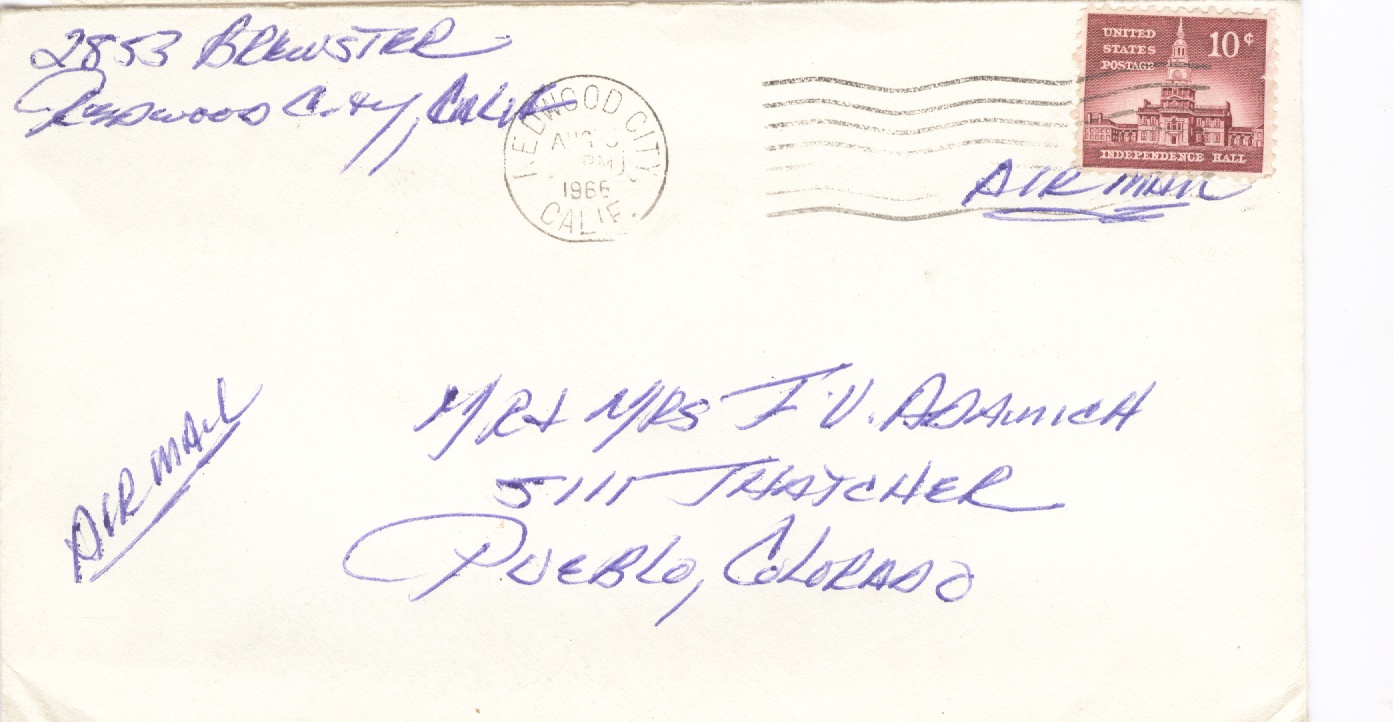 2853 BREWSTER
Redwood City, CALIF
REDWOOD CITY,
AUG
PM
1966
CALIF.
UNITED
STATES
POSTAGE
10¢
INDEPENDENCE HALL
AIR MAIL
AIR MAIL
MR & MRS I.V. ADAMICH
5111 THATCHER
PUEBLO, COLORADO